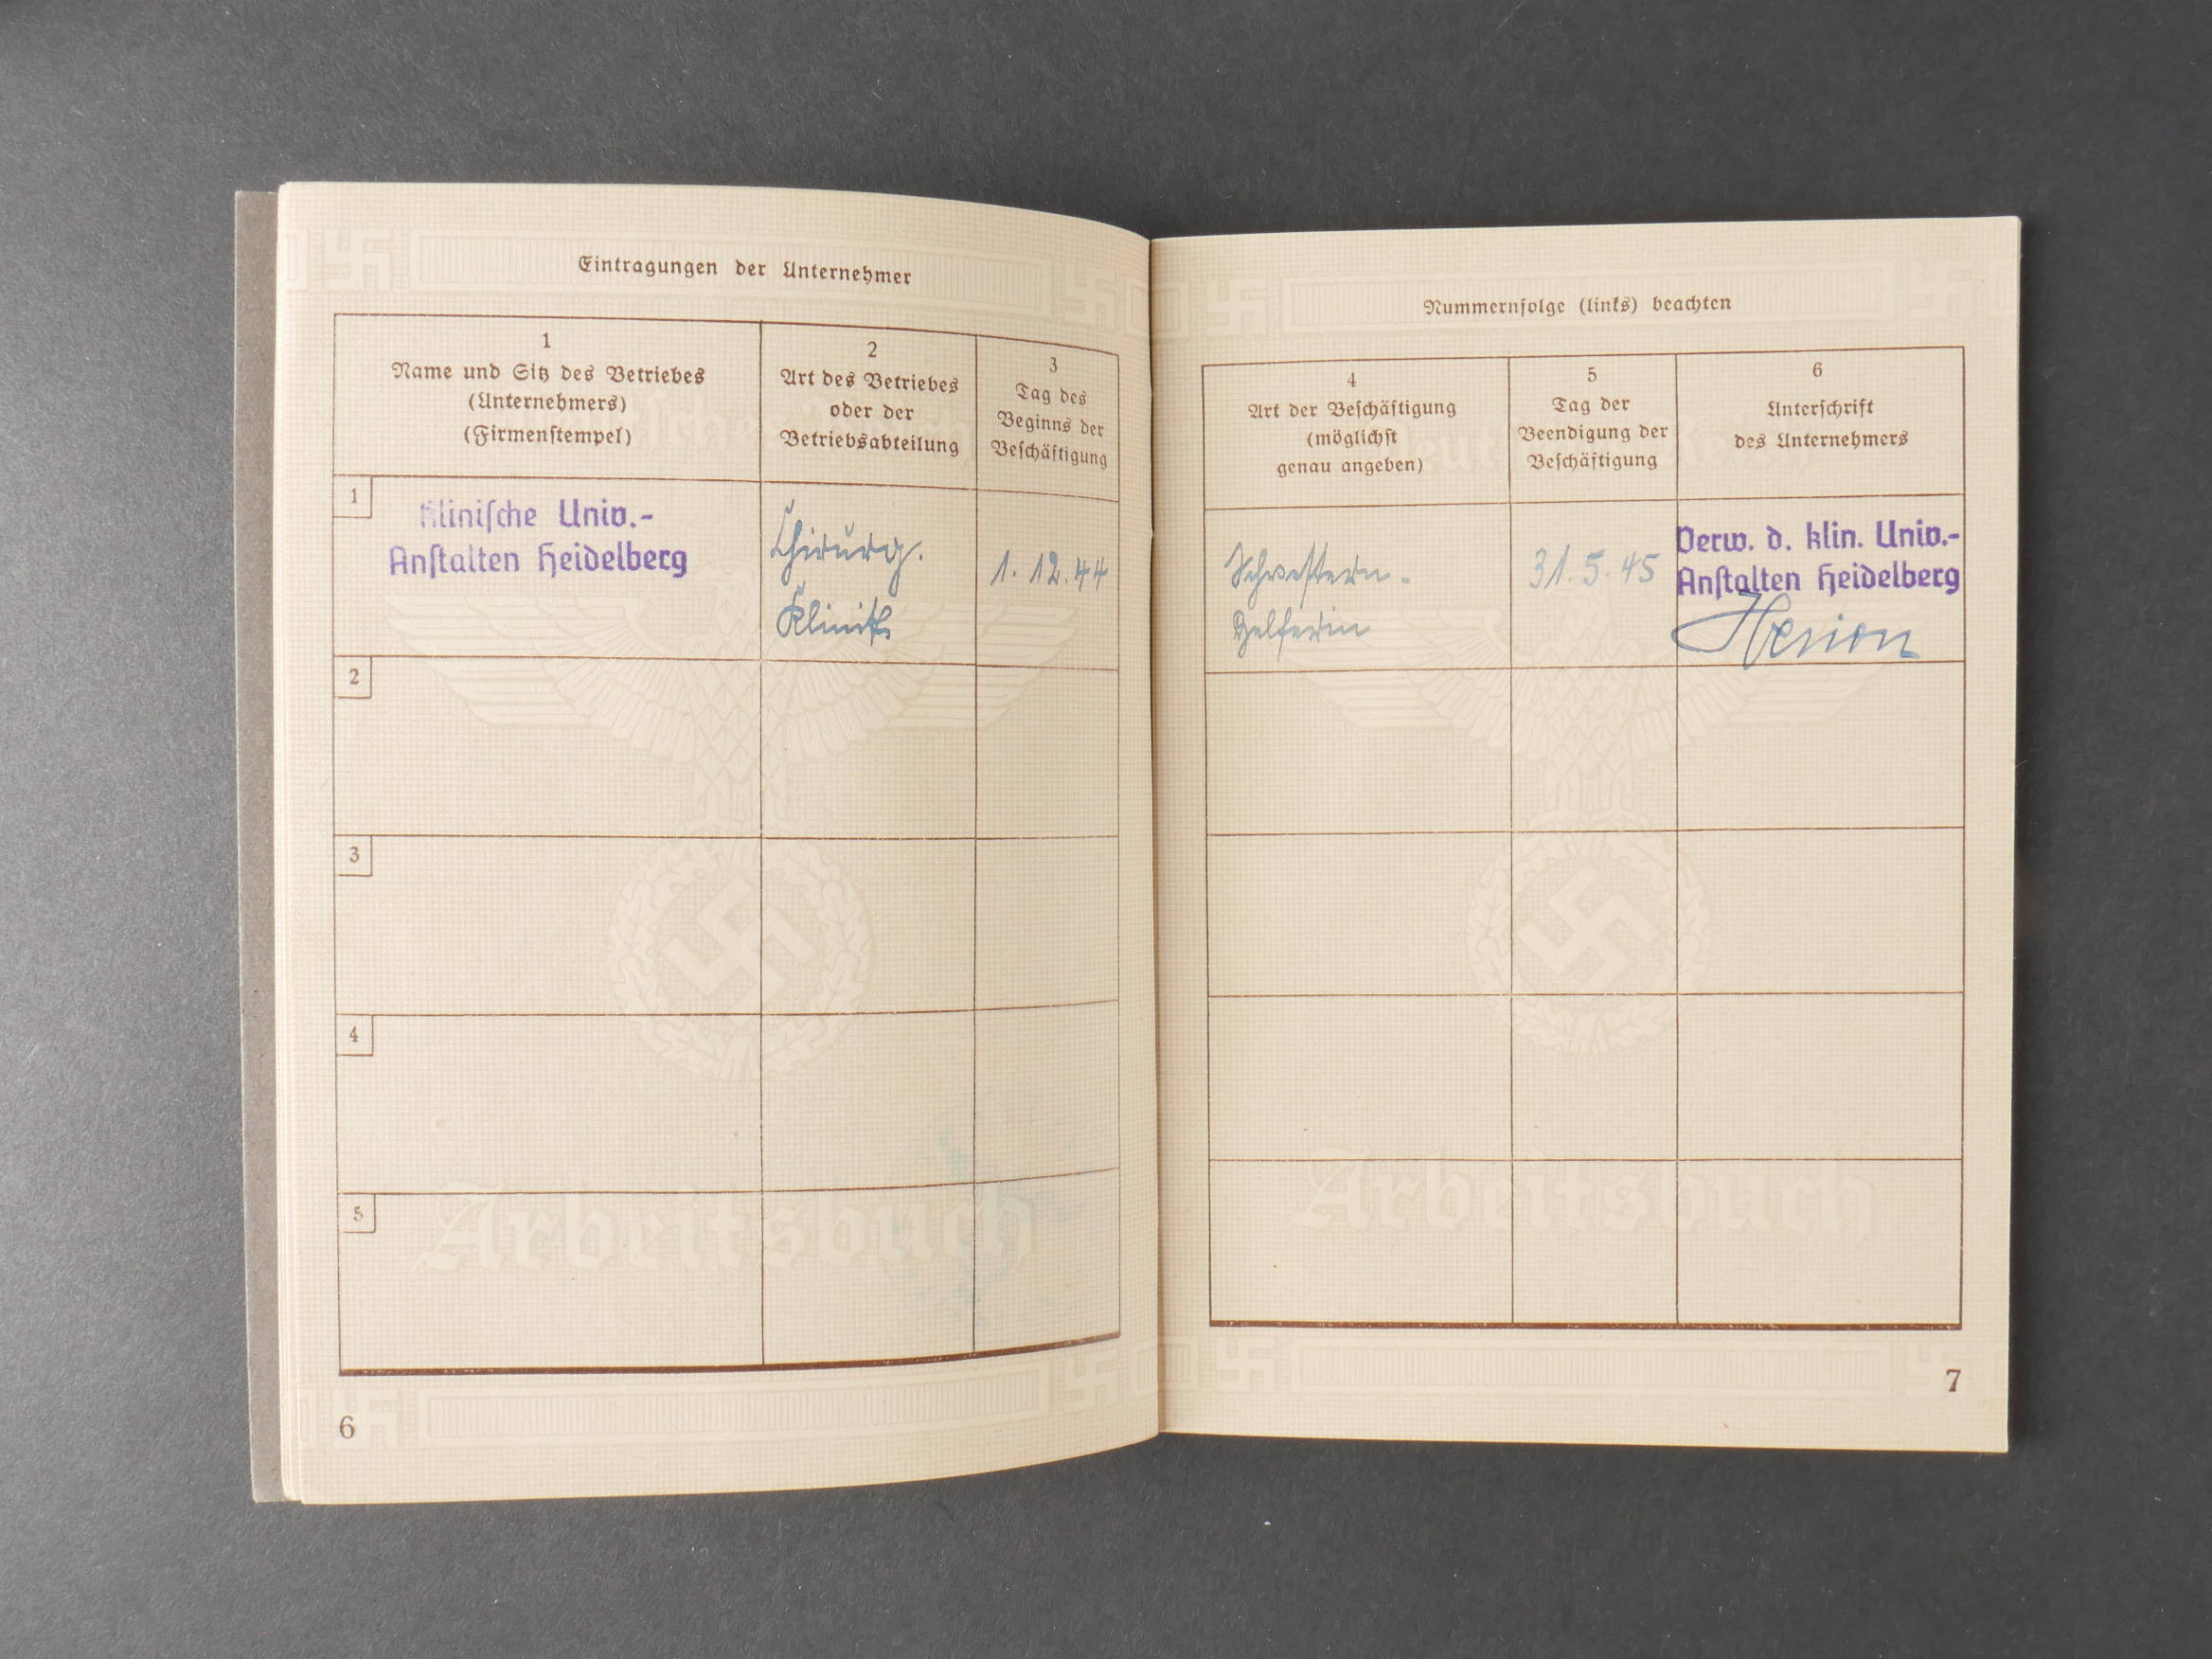 Eintragungen der Unternehmer
1
Name und Sitz des Betriebes
(Unternehmers)
(Firmenstempel)
2
Art des Betriebes
oder der
Betriebsabteilung
3
Tag des
Beginns der
Beschäftigung
1
Klinische Univ.-
Anstalten Heidelberg
Chirurg.
Klinik
1.12.44
2
3
4
5
Arbeitsbuch
6
Nummernfolge (links) beachten
4
Art der Beschäftigung
(möglichst
genau angeben)
5
Tag der
Beendigung der
Beschäftigung
6
Unterschrift
des Unternehmers
Schwestern-
helferin
31.5.45
Verw. d. klin. Univ.-
Anstalten Heidelberg
Arbeitsbuch
7